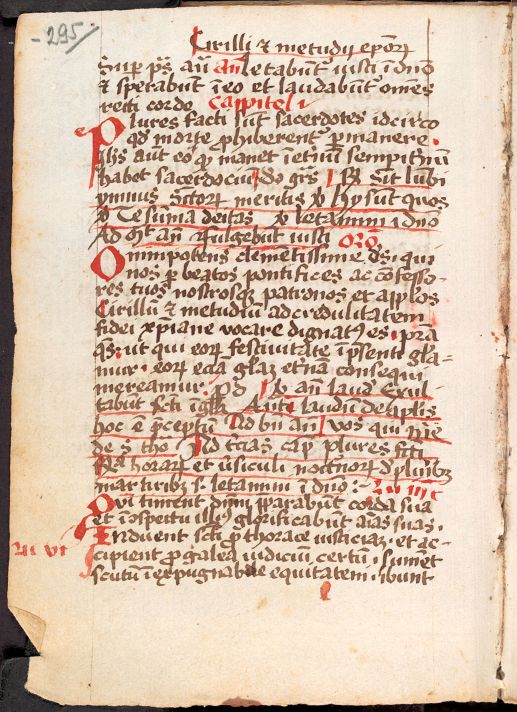 - 295
Cirilli et metudij eporum
Sup ps añ añ letabunt iusti ī dno
et sperabunt ī eo et laudabunt omēs
recti corde Cappitolī
Plures facti sut sacerdotes idcirco
qd morte ꝓhiberent ꝑmanere.
Ihs aut eo qd manet ī eternū sempiternū
habet sacerdociū do grs R Sit lumbi
ymnus Sctorum meritis v Hy sunt quos
v Te suma deitas v letamini ī dno
Ad Mt añ fulgebūt iusti Oro
Omnipotens clementissime ds qui
nos ꝑ beatos pontifices ac cōfesso-
res tuos nostrosqz patronos et applos
Cirillū et metudiū ad credulitatem
fidei xpiane vocare dignatus es prā
qs ut qui eorum festiuitate ī pn̄senti gla-
mur eorum eciā glaz etnā consequi
mereamur Pd añ laud Exul-
tabūt scti ī gl'a laudū de aplis
hoc e p̄ceptū Ad bn añ vos qui
de s Ad tcias cap plures fcti
R horarum et usiculi noctnorum d plīibz
martiribz s letamini ī dno
Qui timent dnm p̄parabūt corda sua
et ī ospectu illius glorificabūt aīas suas
Induent scti ꝓ thorace iusticiaz et ac-
cipient ꝓ galea iudiciū certū sument
scutū īexpugnabile equitatem ibunt